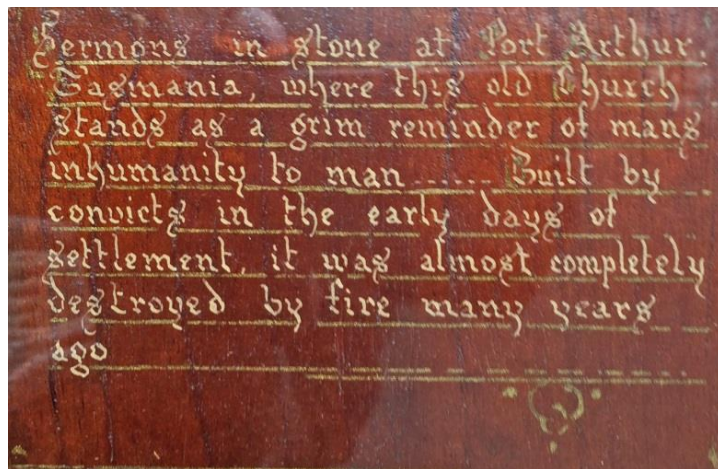 Sermons in stone at Port Arthur.
Tasmania, where this old Church
stands as a grim reminder of mans
inhumanity to man...... Built by
convicts in the early days of
settlement, it was almost completely
destroyed by fire many years
ago